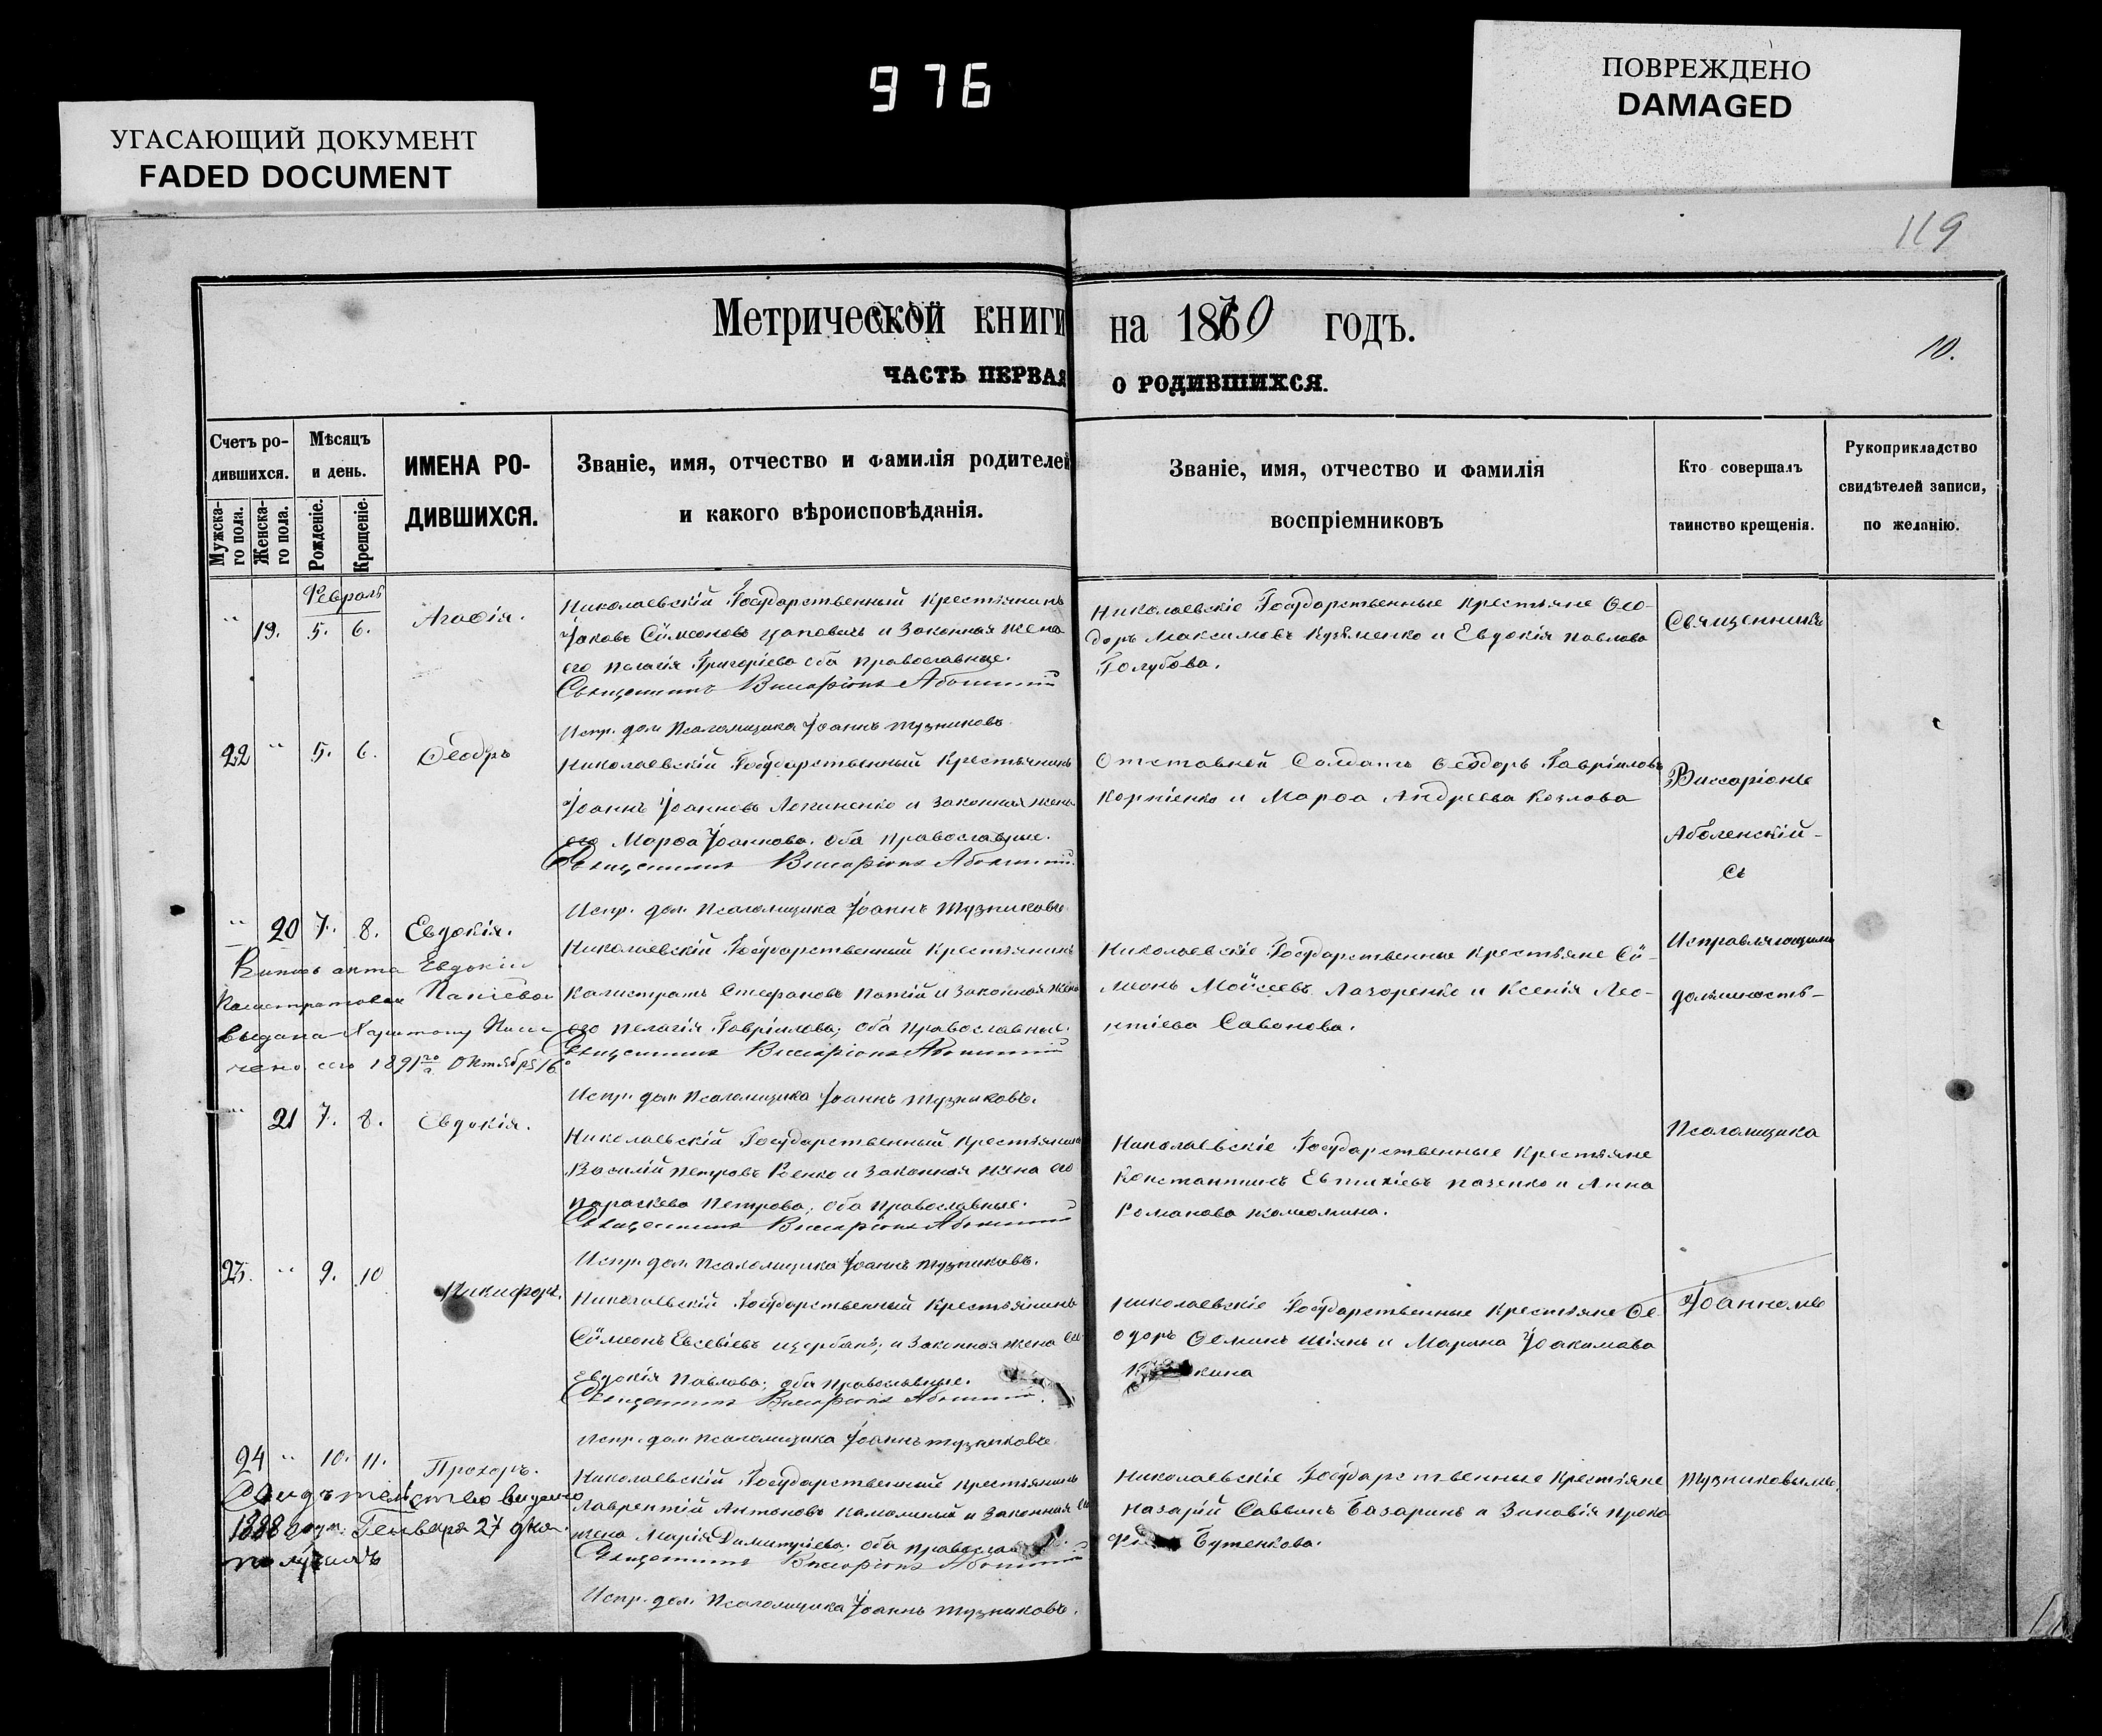 976
УГАСАЮЩИЙ ДОКУМЕНТ
FADED DOCUMENT
ПОВРЕЖДЕНО
DAMAGED
119
Метрической книги на 1870 годъ.
10.
ЧАСТЬ ПЕРВАЯ О РОДИВШИХСЯ.
Счетъ ро-
дившихся.
Мужска-
го пола.
Женска-
го пола.
Мѣсяцъ
и день.
Рожденіе.
Крещеніе.
ИМЕНА РО-
ДИВШИХСЯ.
Званіе, имя, отчество и фамилія родителей
и какого вѣроисповѣданія.
Званіе, имя, отчество и фамилія
воспріемниковъ
Кто совершалъ
таинство крещенія.
Рукоприкладство
свидѣтелей записи,
по желанію.
Февраль
19. 5. 6. Агафія.
Николаевскій Государственный Крестьянинъ
Іаковъ Сѵмеоновъ Цаповичъ и Законная жена
его Пелагія Григоріева оба православные.
Священникъ Виссаріонъ Аболенскій
Испр. дол. Псаломщика Іоаннъ Тузниковъ.
Николаевскіе Государственные Крестьяне Ѳео-
доръ Максимовъ Кузьменко и Евдокія Павлова
Голубова.
22 5. 6. Ѳеодръ
Николаевскій Государственный Крестьянинъ
Іоаннъ Іоанновъ Логиненко и Законная жена
его Марѳа Іоаннова. оба православные.
Священникъ Виссаріонъ Аболенскій
Испр. дол. Псаломщика Іоаннъ Тузниковъ.
Отставной Солдатъ Ѳеодоръ Гавріиловъ
Корніенко и Марѳа Андреева Козлова
20 7. 8. Евдокія.
Выпись акта Евдокіи
выдана Харитону
сего 1891го г. Октября 16
Николаевскій Государственный Крестьянинъ
Калистратъ Стефановъ Папій и Законная жена
его Пелагія Гавріилова; оба православные.
Священникъ Виссаріонъ Аболенскій
Испр. дол. Псаломщика Іоаннъ Тузниковъ.
Николаевскіе Государственные Крестьяне Сѵ-
меонъ Моѵсеевъ Лазоренко и Ксенія Лео-
нтіева Савонова.
21 7. 8. Евдокія.
Николаевскій Государственный Крестьянинъ
Василій Петровъ Роенко и Законная жена его
Параскева Петрова, оба православные.
Священникъ Виссаріонъ Аболенскій
Испр. дол. Псаломщика Іоаннъ Тузниковъ.
Николаевскіе Государственные Крестьяне
Константинъ Евтихіевъ Пазенко и Анна
Романова
23. 9. 10 Никифоръ.
Николаевскій Государственный Крестьянинъ
Сѵмеонъ Евсевіевъ Щербань; и Законная жена его
Евдокія Павлова; оба православные.
Священникъ Виссаріонъ Аболенскій.
Испр. дол. Псаломщика Іоаннъ Тузниковъ.
Николаевскіе Государственные Крестьяне Ѳе-
одоръ Ѳоминъ Шіянъ и Марина Іоакимова
кина
24 10. 11. Прохоръ.
Свидѣтельство выдано
1888 года: Генваря 27 дня.
получилъ
Николаевскій Государственный Крестьянинъ
Лаврентій Антоновъ и Законная его
жена Марія Димитріева. оба
Священникъ Виссаріонъ Аболенскій
Испр. дол. Псаломщика Іоаннъ Тузниковъ.
Николаевскіе Государственные Крестьяне
Назарій Саввинъ Базаринъ и Зиновія Проко
Бутенкова.
Священникъ
Виссаріонъ
Аболенскій-
съ
Исправляющимъ
должность-
Псаломщика
Іоанномъ
Тузниковымъ.